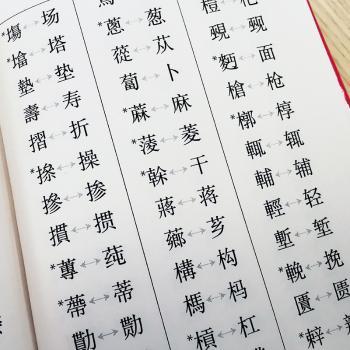 *塲↔场
*墖↔塔
墊↔垫
壽↔寿
摺↔折
↔操
摻↔掺
摜↔掼
*蓴↔莼
*蔕↔蒂
勩↔勚
*蔥↔葱
蓯↔苁
蔔↔卜
*蔴↔麻
*蔆↔菱
*榦↔干
蔣↔蒋
薌↔芗
構↔构
榪↔杩
*槓↔杠
覡↔觋
*麪↔面
槍↔枪
*槨↔椁
輒↔辄
輔↔辅
輕↔轻
塹↔堑
*輓↔挽
匱↔匮